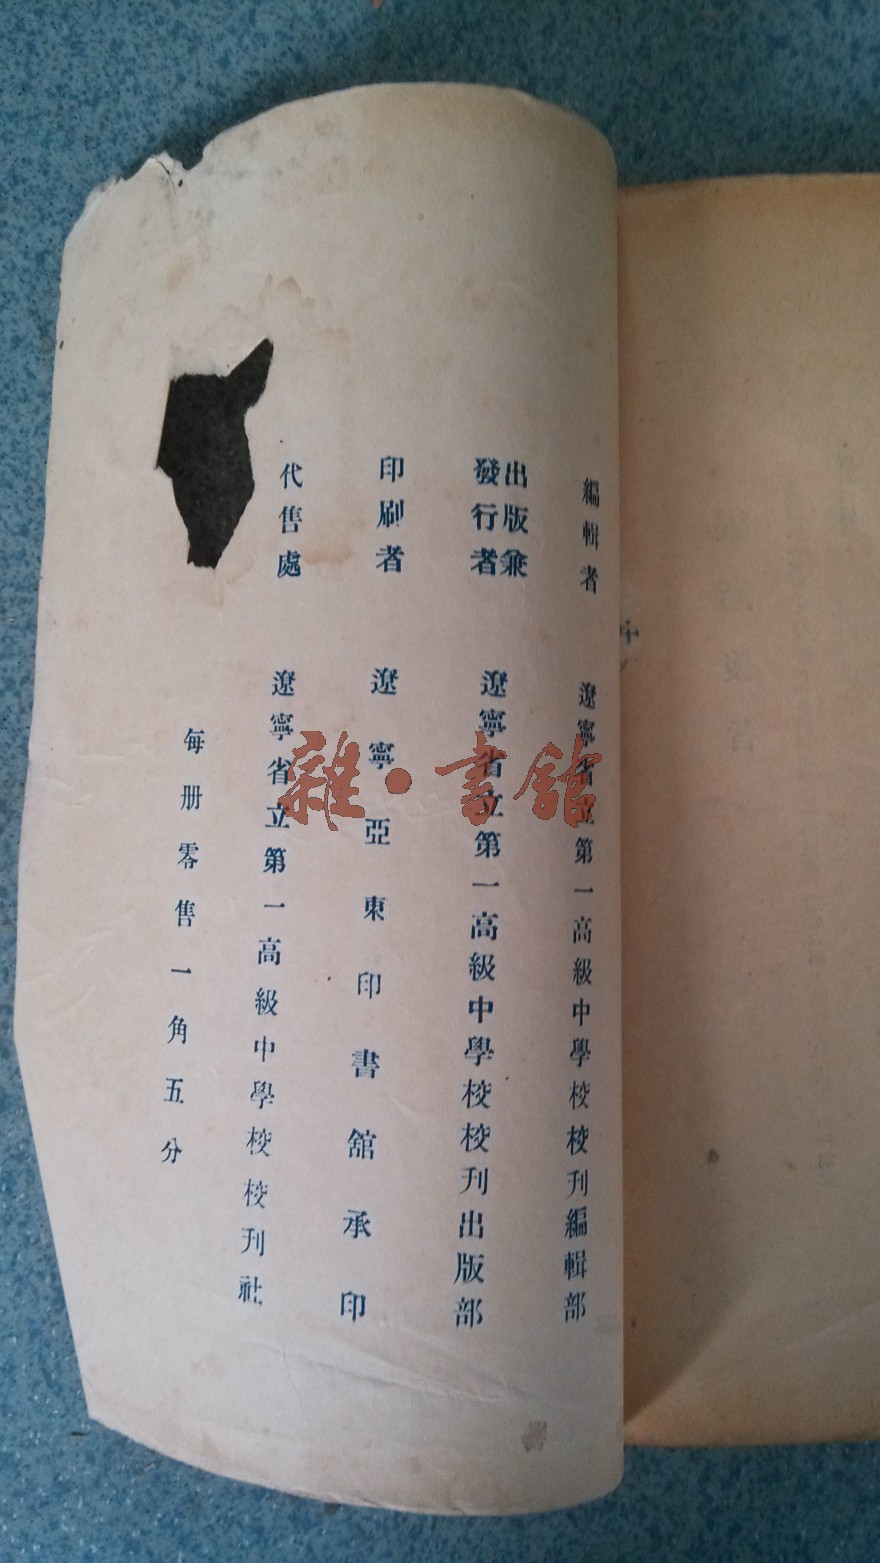 編輯者 遼寧省立第一高級中學校校刊編輯部
出版兼發行者 遼寧省立第一高級中學校校刊出版部
印刷者 遼寧亞東印書舘承印
代售處 遼寧省立第一高級中學校校刊社
每册零售一角五分
雜·書舘